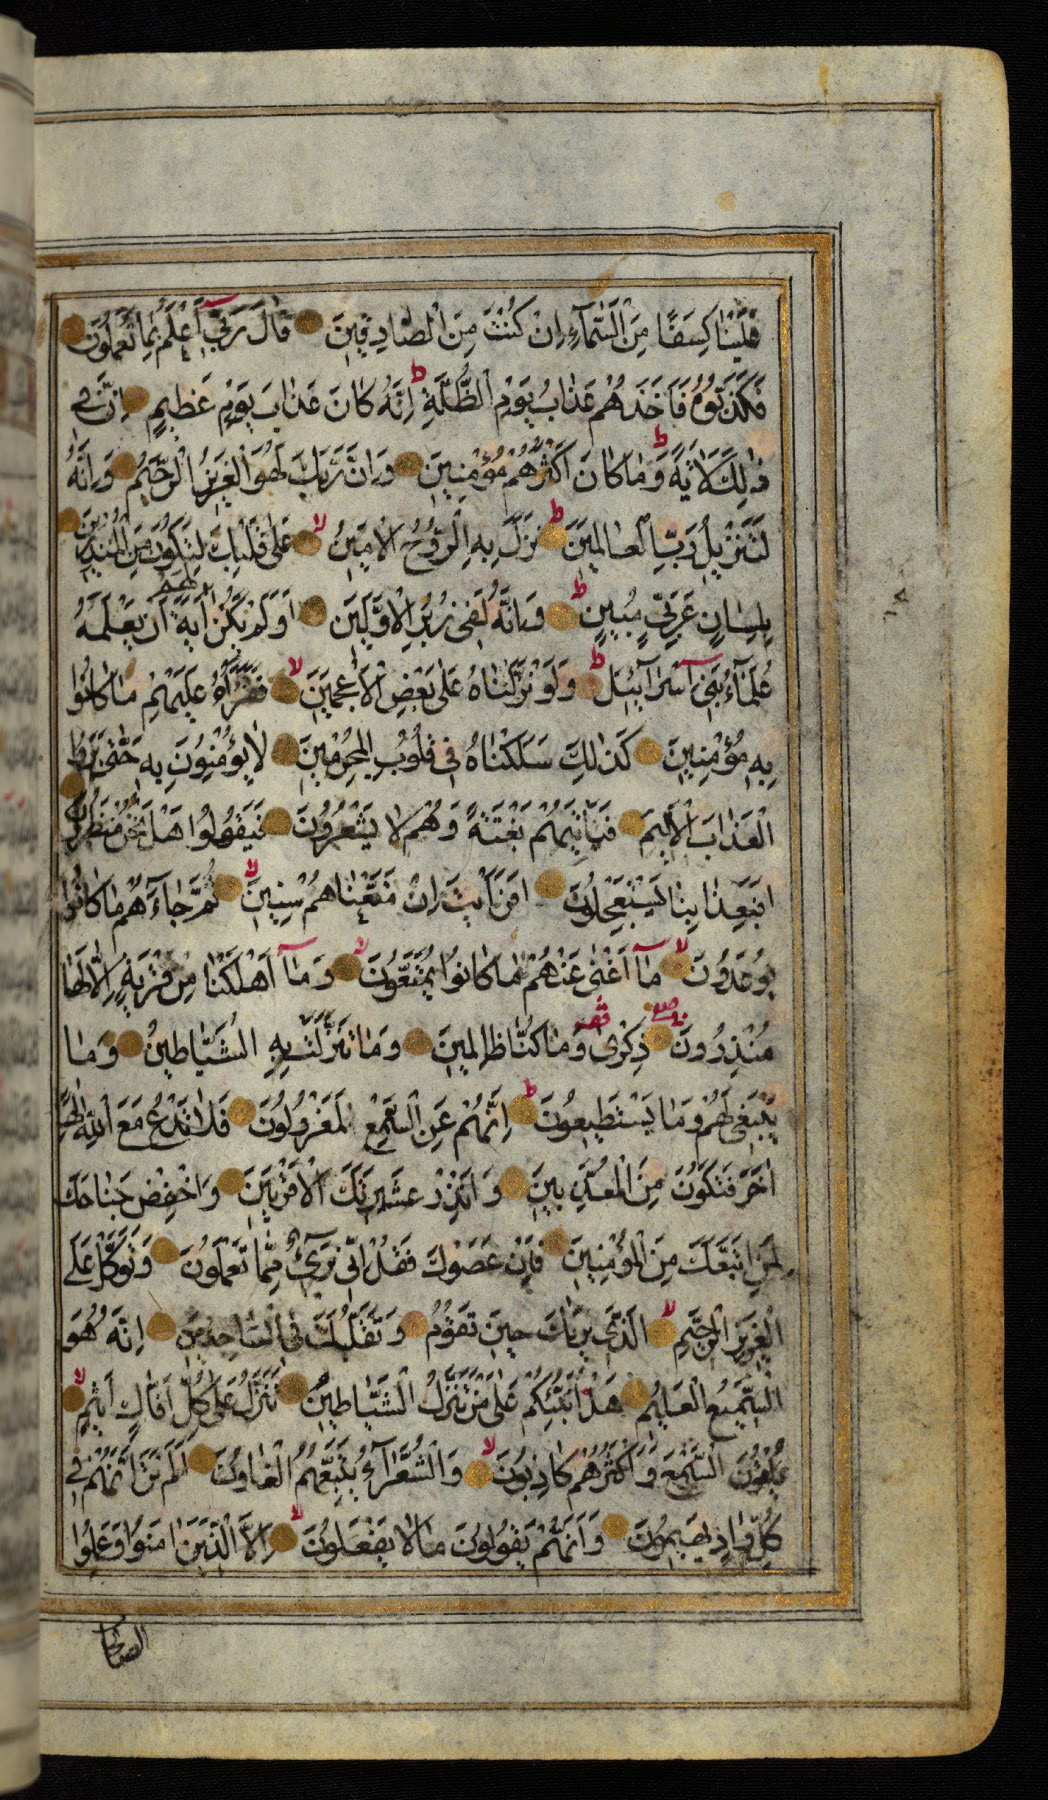 عَلَيْنَا كِسَفًا مِنَ السَّمَآءِ اِنْ كُنْتَ مِنَ الصَّادِقِينَ قَالَ رَبِّىٓ اَعْلَمُ بِمَا تَعْمَلُونَ
فَكَذَّبُوهُ فَاَخَذَهُمْ عَذَابُ يَوْمِ الظُّلَّةِ ط اِنَّهُ كَانَ عَذَابَ يَوْمٍ عَظِيمٍ اِنَّ فِى
ذٰلِكَ لَاٰيَةً ط وَمَا كَانَ اَكْثَرُهُمْ مُؤْمِنِينَ وَاِنَّ رَبَّكَ لَهُوَ الْعَزِيزُ الرَّحِيمُ وَاِنَّهُ
لَتَنْزِيلُ رَبِّ الْعَالَمِينَ ط نَزَلَ بِهِ الرُّوحُ الْاَمِينُ لا عَلٰى قَلْبِكَ لِتَكُونَ مِنَ الْمُنْذِرِينَ
بِلِسَانٍ عَرَبِىٍّ مُبِينٍ ط وَاِنَّهُ لَفِى زُبُرِ الْاَوَّلِينَ اَوَلَمْ يَكُنْ لَهُمْ اٰيَةً اَنْ يَعْلَمَهُ
عُلَمَآءُ بَنِىٓ اِسْرَآئِيلَ ط وَلَوْ نَزَّلْنَاهُ عَلٰى بَعْضِ الْاَعْجَمِينَ لا فَقَرَاَهُ عَلَيْهِمْ مَا كَانُوا
بِهِ مُؤْمِنِينَ كَذٰلِكَ سَلَكْنَاهُ فِى قُلُوبِ الْمُجْرِمِينَ لَا يُؤْمِنُونَ بِهِ حَتّٰى يَرَوُا
الْعَذَابَ الْاَلِيمَ فَيَاْتِيَهُمْ بَغْتَةً وَهُمْ لَا يَشْعُرُونَ فَيَقُولُوا هَلْ نَحْنُ مُنْظَرُونَ
اَفَبِعَذَابِنَا يَسْتَعْجِلُونَ اَفَرَاَيْتَ اِنْ مَتَّعْنَاهُمْ سِنِينَ لا ثُمَّ جَآءَهُمْ مَا كَانُوا
يُوعَدُونَ لا مَآ اَغْنٰى عَنْهُمْ مَا كَانُوا يُمَتَّعُونَ لا وَمَآ اَهْلَكْنَا مِنْ قَرْيَةٍ اِلَّا لَهَا
مُنْذِرُونَ ذِكْرٰى وَمَا كُنَّا ظَالِمِينَ وَمَا تَنَزَّلَتْ بِهِ الشَّيَاطِينُ وَمَا
يَنْبَغِى لَهُمْ وَمَا يَسْتَطِيعُونَ ط اِنَّهُمْ عَنِ السَّمْعِ لَمَعْزُولُونَ فَلَا تَدْعُ مَعَ اللّٰهِ اِلٰهًا
اٰخَرَ فَتَكُونَ مِنَ الْمُعَذَّبِينَ وَاَنْذِرْ عَشِيرَتَكَ الْاَقْرَبِينَ وَاخْفِضْ جَنَاحَكَ
لِمَنِ اتَّبَعَكَ مِنَ الْمُؤْمِنِينَ فَاِنْ عَصَوْكَ فَقُلْ اِنِّى بَرِىٓءٌ مِمَّا تَعْمَلُونَ وَتَوَكَّلْ عَلَى
الْعَزِيزِ الرَّحِيمِ لا الَّذِى يَرٰىكَ حِينَ تَقُومُ وَتَقَلُّبَكَ فِى السَّاجِدِينَ اِنَّهُ هُوَ
السَّمِيعُ الْعَلِيمُ هَلْ اُنَبِّئُكُمْ عَلٰى مَنْ تَنَزَّلُ الشَّيَاطِينُ تَنَزَّلُ عَلٰى كُلِّ اَفَّاكٍ اَثِيمٍ لا
يُلْقُونَ السَّمْعَ وَاَكْثَرُهُمْ كَاذِبُونَ لا وَالشُّعَرَآءُ يَتَّبِعُهُمُ الْغَاوُنَ اَلَمْ تَرَ اَنَّهُمْ فِى
كُلِّ وَادٍ يَهِيمُونَ وَاَنَّهُمْ يَقُولُونَ مَا لَا يَفْعَلُونَ لا اِلَّا الَّذِينَ اٰمَنُوا وَعَمِلُوا
الصالحات